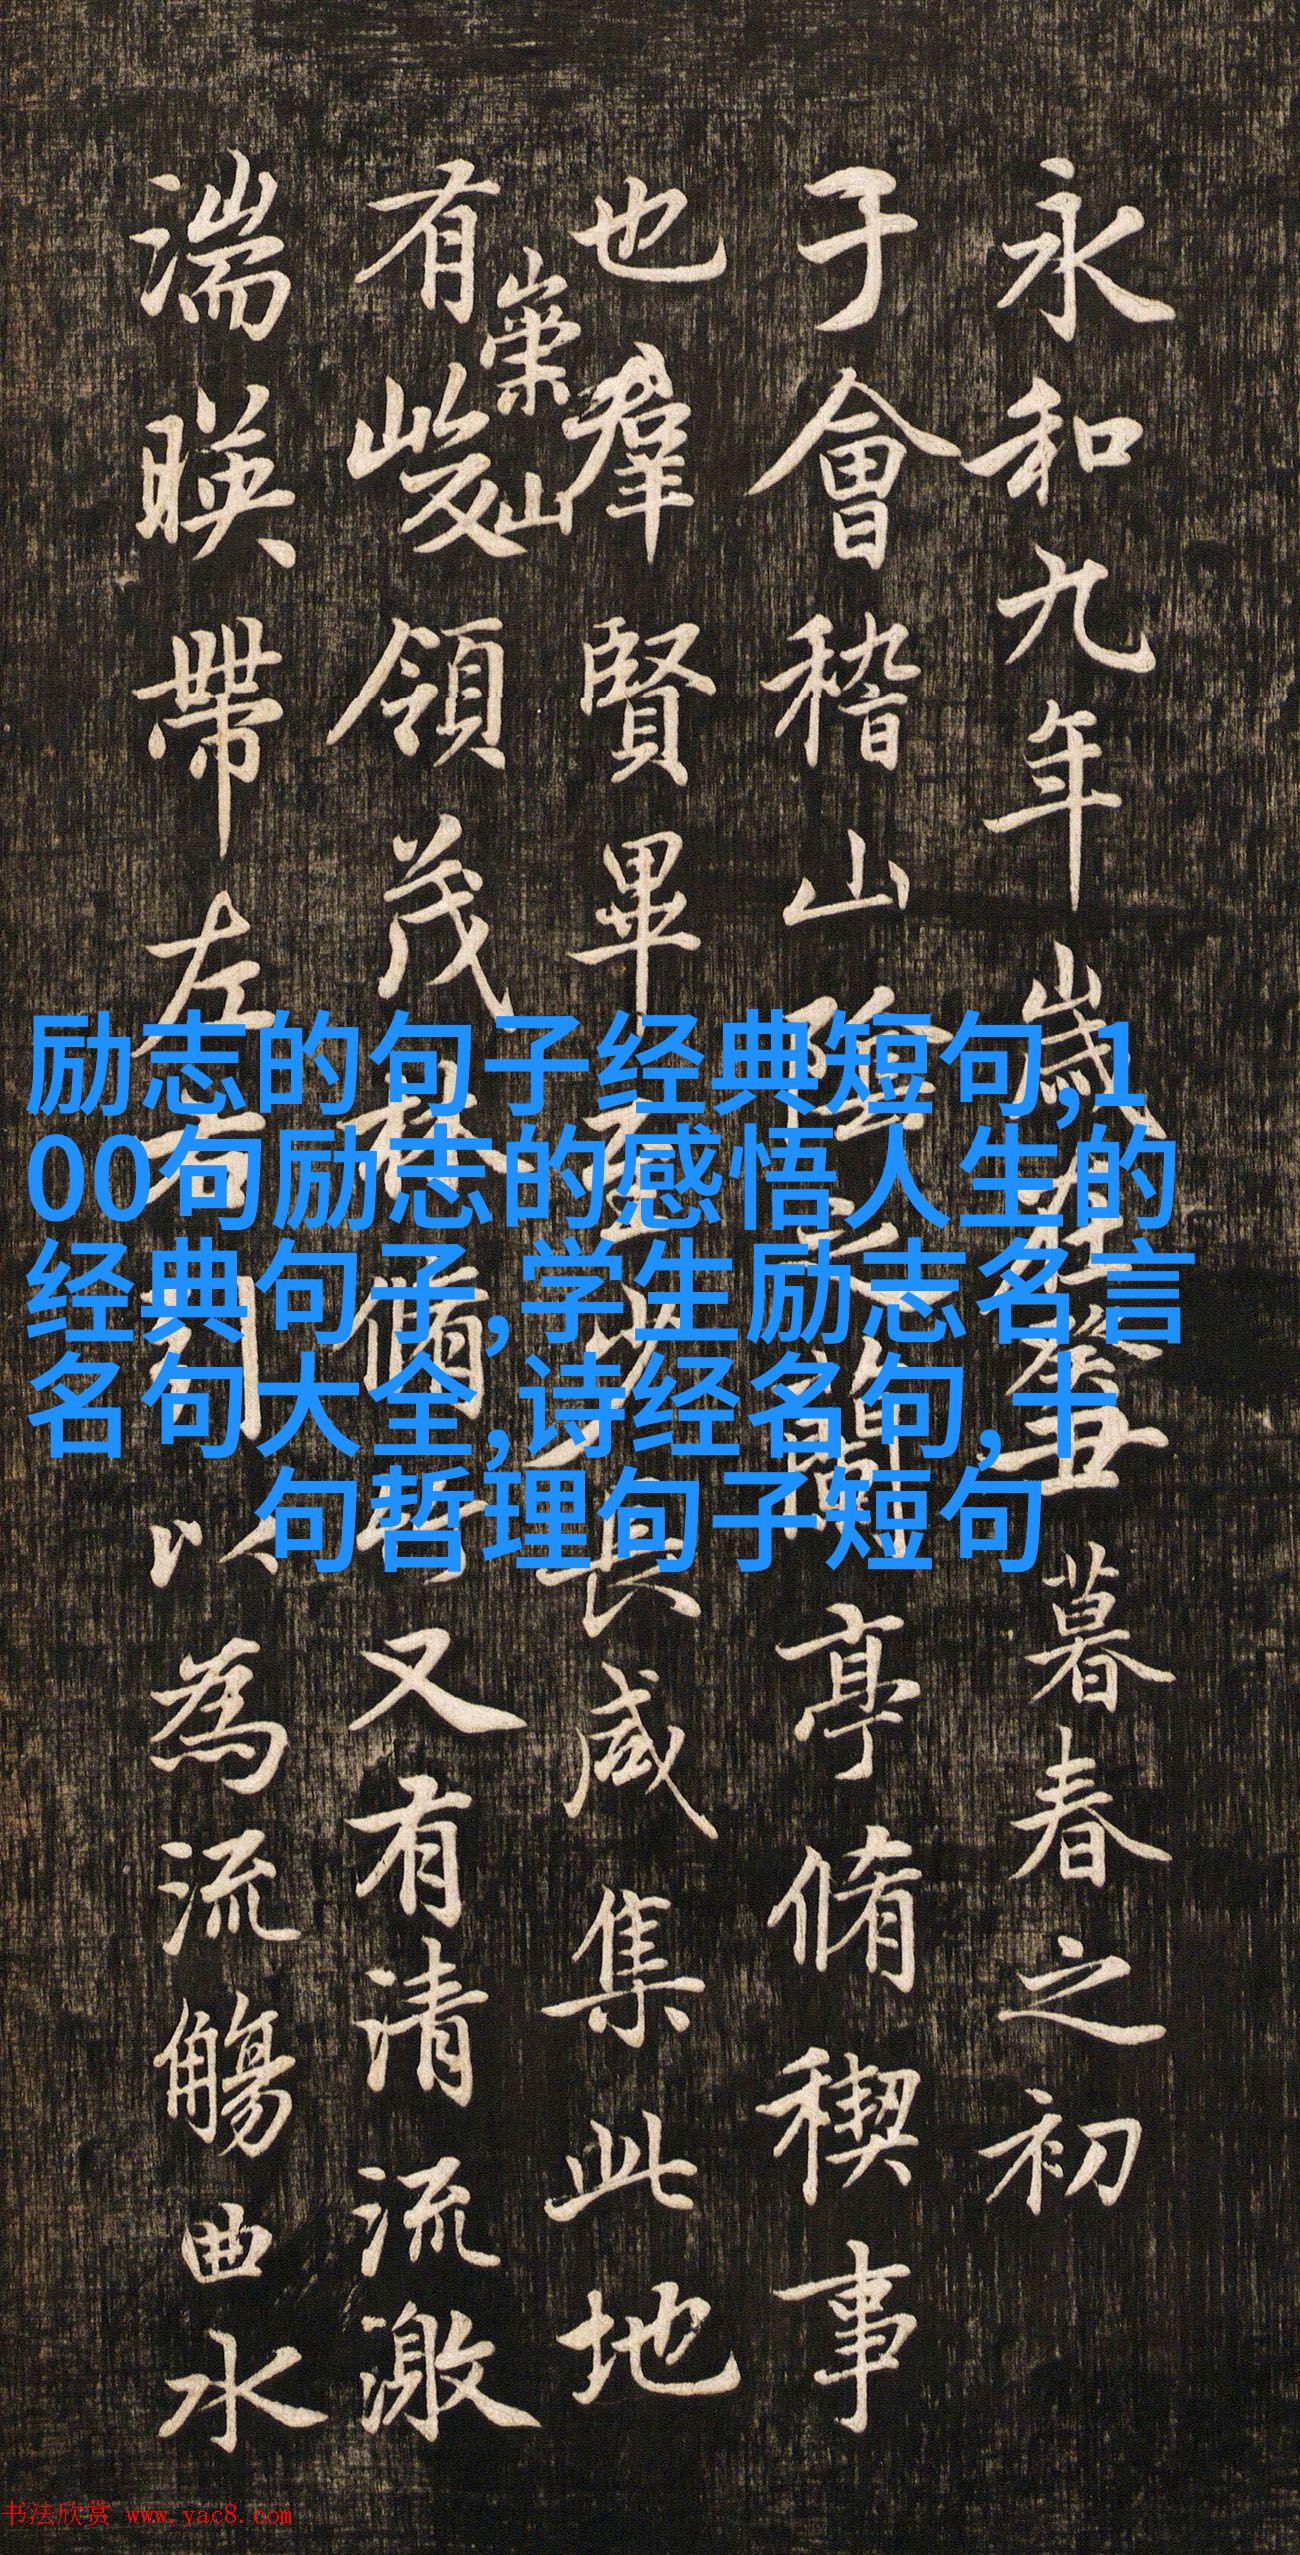 永和九年歲在癸丑暮春之初
于會稽山陰之蘭亭脩稧事
也羣賢畢至少長咸集此地
有峻領茂林脩竹又有清流激
崇山
湍暎帶左右引以為流觴曲水
励志的句子经典短句,1
00句励志的感悟人生的
经典句子,学生励志名言
名句大全,诗经名句,十
句哲理句子短句
书法欣赏 www.yac8.com